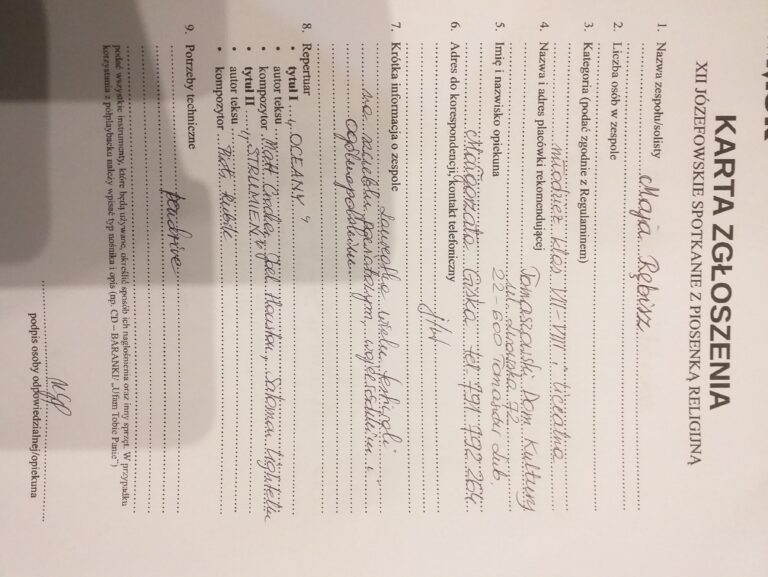 KARTA ZGŁOSZENIA
XII JÓZEFOWSKIE SPOTKANIE Z PIOSENKĄ RELIGIJNĄ
1. Nazwa zespołu/solisty
Maja Rębisz
2. Liczba osób w zespole
3. Kategoria (podać zgodnie z Regulaminem)
młodzież klas VII-VIII i licealna
4. Nazwa i adres placówki rekomendującej
Tomaszowski Dom Kultury
ul. Lwowska 72
22-600 Tomaszów Lub.
5. Imię i nazwisko opiekuna
Małgorzata tel. 791 792 264
6. Adres do korespondencji, kontakt telefoniczny
j/w
7. Krótka informacja o zespole
Laureatka wielu festiwali
na szczeblu powiatowym, wojewódzkim i
ogólnopolskim
8. Repertuar
• tytuł I „OCEANY"
• autor tekstu Matt Crocker, Joel Houston, Salomon Lighthelm
• kompozytor
• tytuł II „STRUMIEŃ
• autor tekstu
• kompozytor Piotr Rubik
9. Potrzeby techniczne
pendrive
podać wszystkie instrumenty, które będą używane, określić sposób ich nagłośnienia oraz inny sprzęt. W przypadku
korzystania z półplaybacku należy wpisać typ nośnika i opis (np. CD – BARANKI/ „Ufam Tobie Panie")
podpis osoby odpowiedzialnej/opiekuna